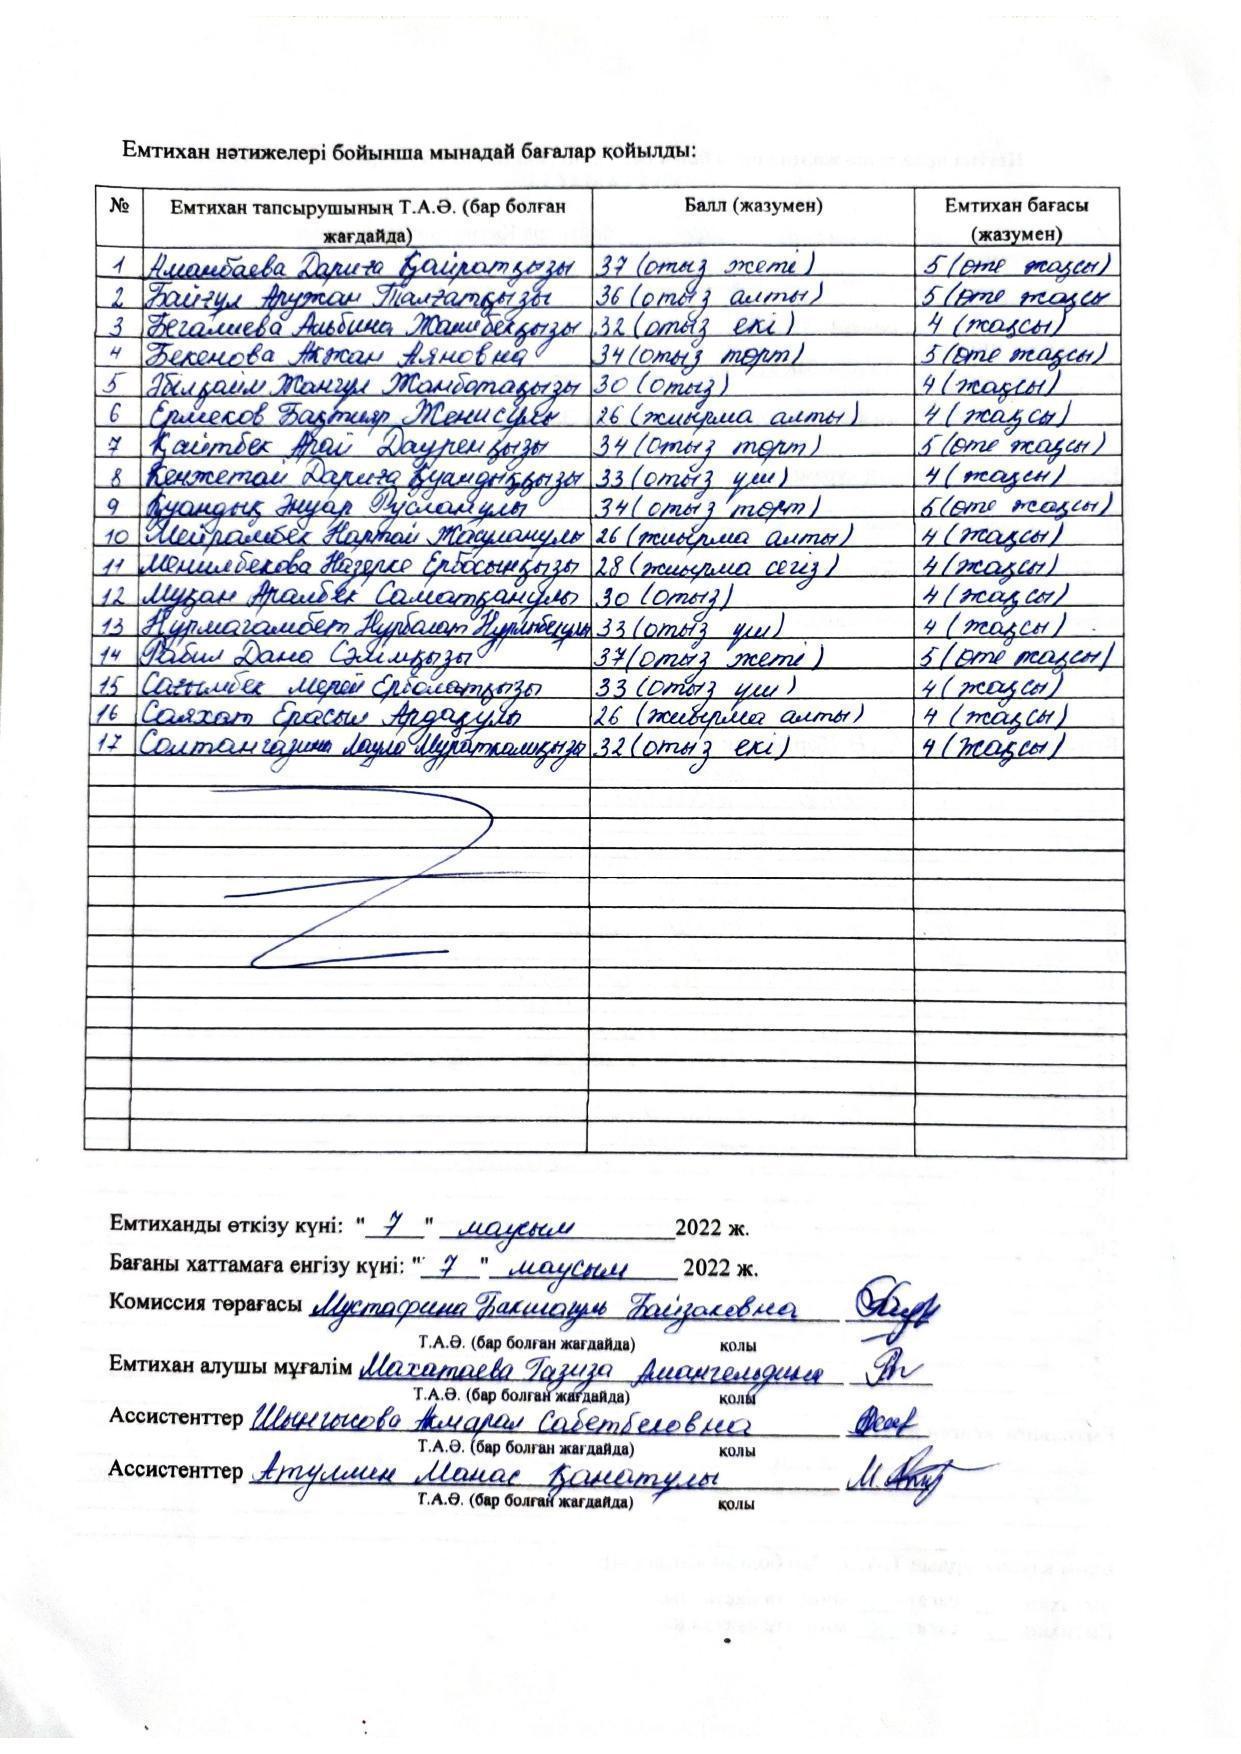 Емтихан нәтижелері бойынша мынадай бағалар қойылды:
№ Емтихан тапсырушының Т.А.Ә. (бар болған жағдайда) Балл (жазумен) Емтихан бағасы (жазумен)
1 Аманбаева Дариға Қайратқызы 37 (отыз жеті) 5 (өте жақсы)
2 Байгул Аружан Талғатқызы 36 (отыз алты) 5 (өте жақсы
3 Бегалиева Альбина Жанибекқызы 32 (отыз екі) 4 (жақсы)
4 Бекенова Акжан Аяновна 34 (отыз төрт) 5 (өте жақсы)
5 Әбілқайм Жангул Жанботақызы 30 (отыз) 4 (жақсы)
6 Ермеков Бақтияр Женисұлы 26 (жиырма алты) 4 (жақсы)
7 Қайтбек Арай Дауренқызы 34 (отыз төрт) 5 (өте жақсы)
8 Кенжетай Дариға Қуандыққызы 33 (отыз үш) 4 (жақсы)
9 Қуандық Әнуар Русланұлы 34 (отыз төрт) 5 (өте жақсы)
10 Мейрамбек Нартай Жасуланұлы 26 (жиырма алты) 4 (жақсы)
11 Менилбекова Назерке Ербосынқызы 28 (жиырма сегіз) 4 (жақсы)
12 Мұқан Аралбек Саматқанұлы 30 (отыз) 4 (жақсы)
13 Нұрмағамбет Нұрболат Нұрлыбекұлы 33 (отыз үш) 4 (жақсы)
14 Рабил Дана Сәлімқызы 37 (отыз жеті) 5 (өте жақсы)
15 Сағымбек Мерей Ерболатқызы 33 (отыз үш) 4 (жақсы)
16 Саяхат Ерасыл Ардақұлы 26 (жиырма алты) 4 (жақсы)
17 Солтангазина Лаула 32 (отыз екі) 4 (жақсы)
Емтиханды өткізу күні: " 7 " маусым 2022 ж.
Бағаны хаттамаға енгізу күні: " 7 " маусым 2022 ж.
Комиссия төрағасы Мустафина Бакшагуль Байзаковна
Т.А.Ә. (бар болған жағдайда) қолы
Емтихан алушы мұғалім Махатаева Газиза Амангельдина
Т.А.Ә. (бар болған жағдайда) қолы
Ассистенттер Шынгысова Акмарал Сабетбековна
Т.А.Ә. (бар болған жағдайда) қолы
Ассистенттер Атулмин Манас Қанатұлы
Т.А.Ә. (бар болған жағдайда) қолы